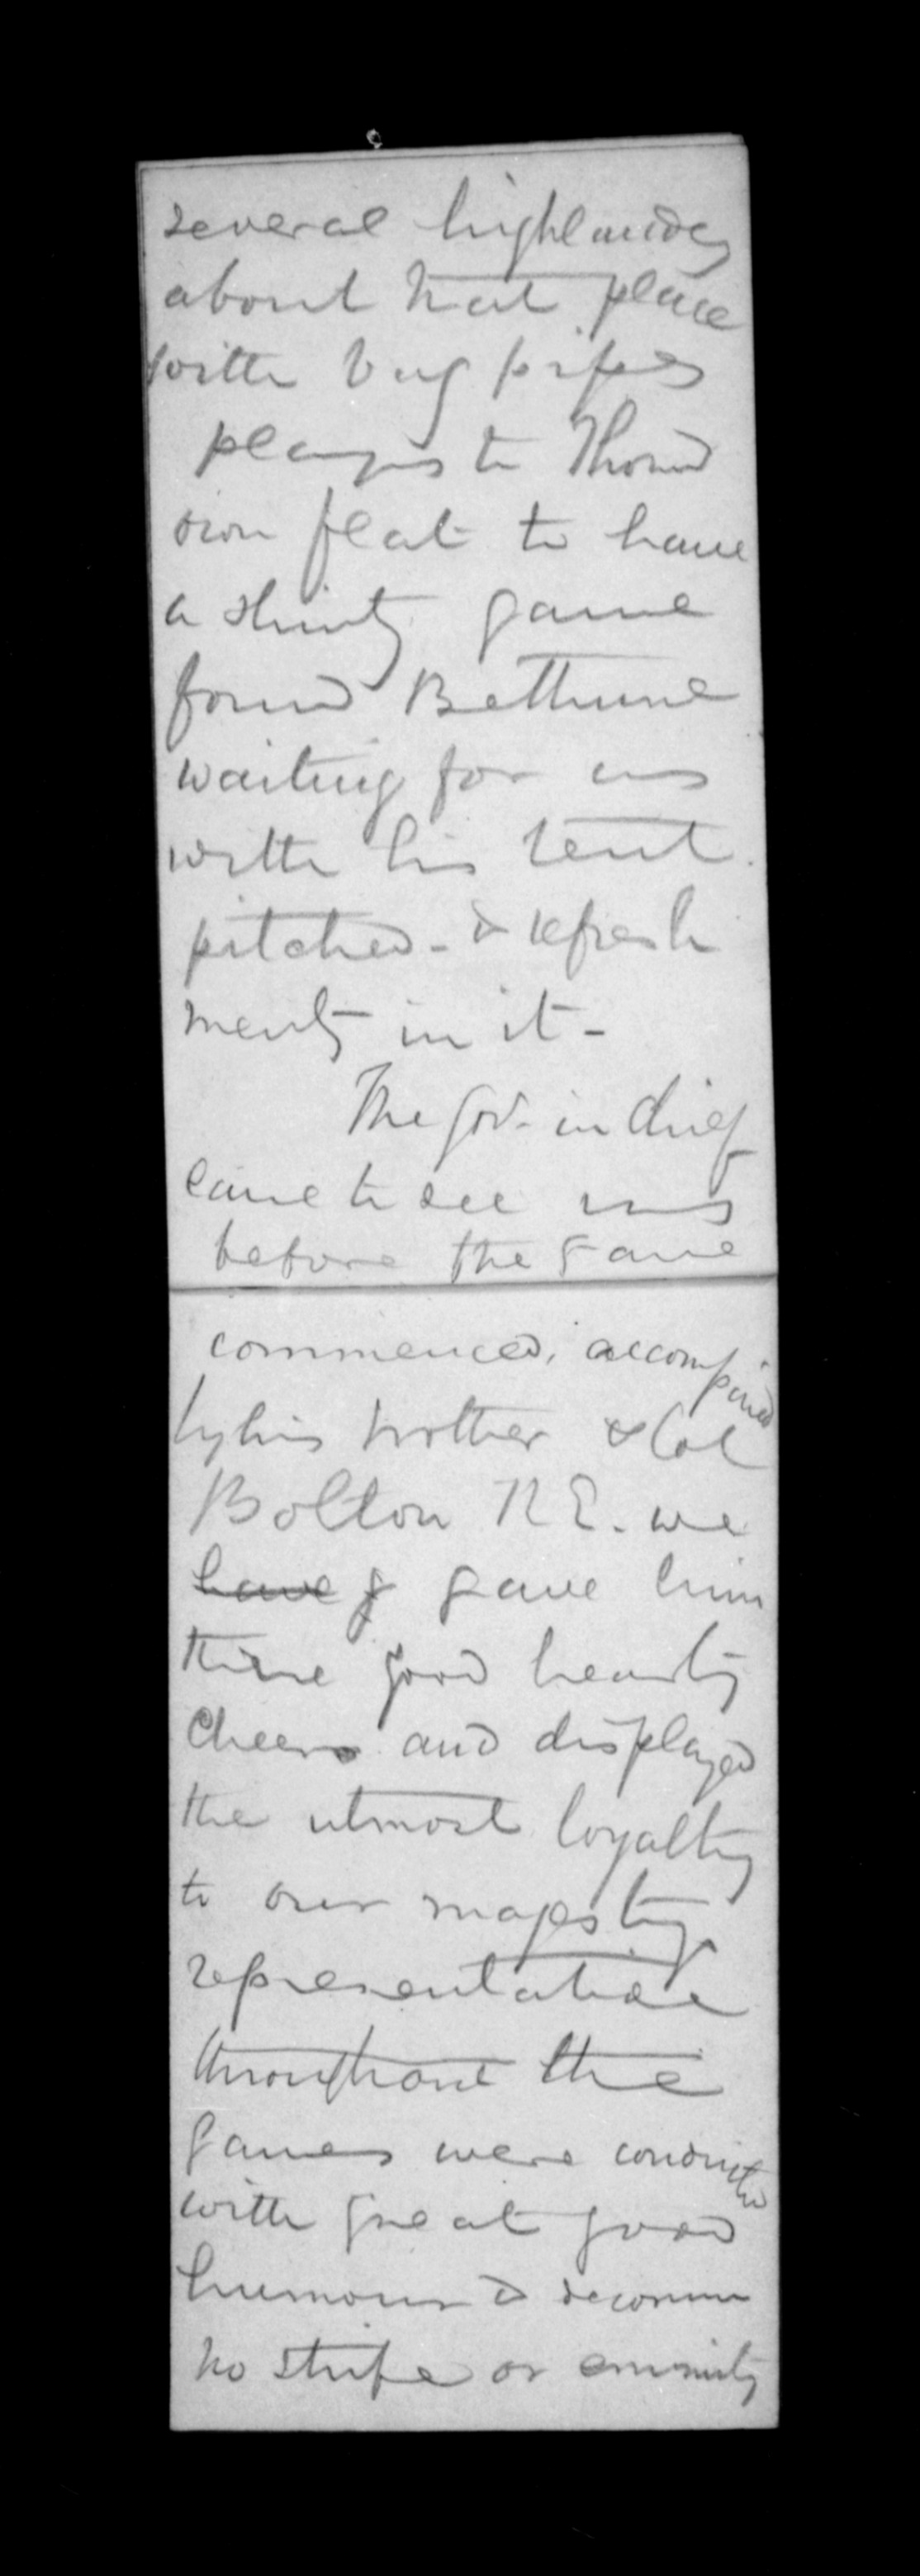 several highlanders
about that place
with bag pipes
playing to Thornd
own flat to have
a shinty game
found Bethune
waiting for us
with his tent
pitched - & refresh
ments in it -
The Gov. in chief
came to see us
before the game
commenced, accompained
by his brother & Col
Bolton R E. we
have g gave him
three good hearty
Cheers and displayed
the utmost loyalty
to our majesty's
representative
throughout the
games were conducted
with great good
humour & decorum
no strife or enmity